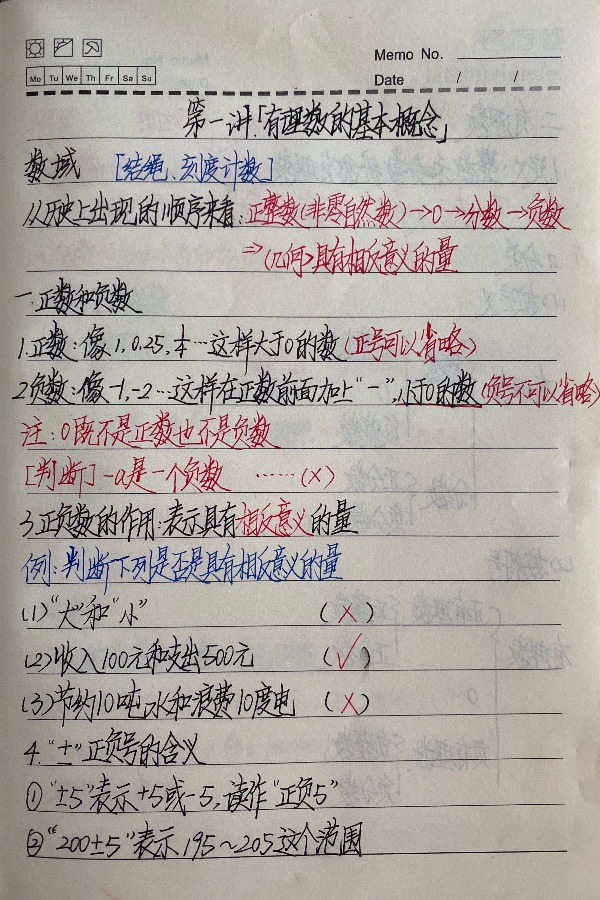 Memo No.
Mo Tu We Th Fr Sa Su
Date / /
第一讲「有理数的基本概念」
数域 [结绳、刻度计数]
从历史上出现的顺序来看:正整数(非零自然数)→0→分数→负数
⇒(几何)具有相反意义的量
一.正数和负数
1.正数:像1,0.25,…这样大于0的数(正号可以省略)
2.负数:像-1,-2…这样在正数前面加上“-”,小于0的数(负号不可以省略)
注:0既不是正数也不是负数
[判断]-a是一个负数 ……(×)
3.正负数的作用:表示具有相反意义的量
例:判断下列是否是具有相反意义的量
(1)“大”和“小” (×)
(2)收入100元和支出500元 (√)
(3)节约10吨水和浪费10度电 (×)
4.“±”正负号的含义
①“±5”表示+5或-5,读作“正负5”
②“200±5”表示195~205这个范围